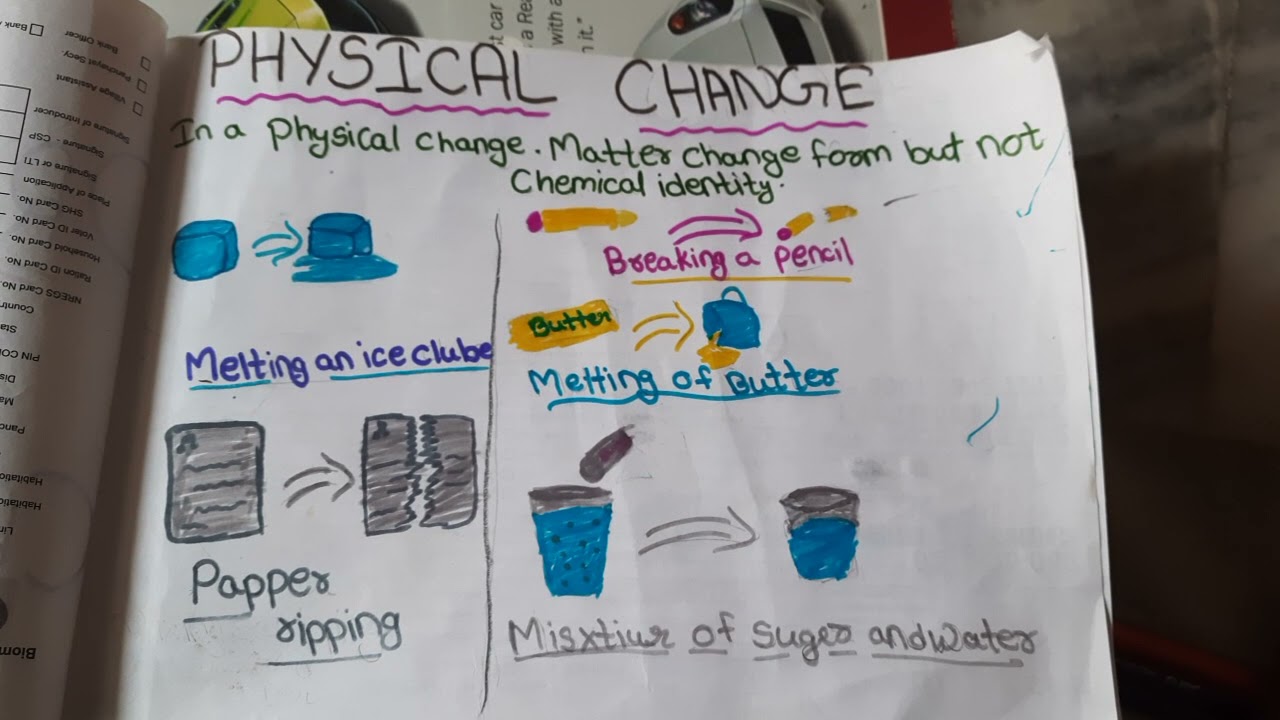 PHYSICAL CHANGE
In a Physical change. Matter change form but not
Chemical identity.
Melting an ice clube
Papper
ripping
Breaking a pencil
Butter
Melting of Butter
Misxtiur of suger and water
t car
a Rea
with a
it."
Bank Officer
Panchayat Secy.
Village Assistant
Signature of Introducer
Signature - CSP
Signature or LTI
Place of Application
SHG Card No.
Voter ID Card No.
Household Card No.
Ration ID Card No.
NREGS Card No.
Countr
Sta
PIN CO
Dis
Ma
Panc
Habitatio
Habitatio
Lin
Biom